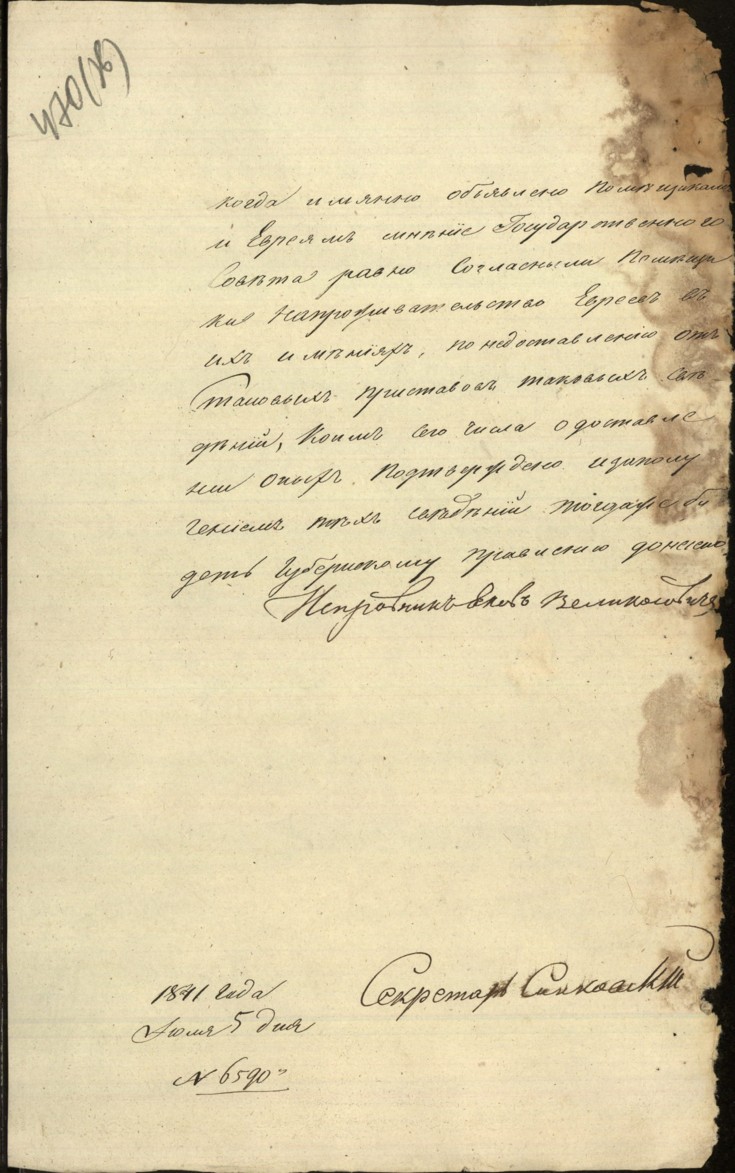 470 (об)
когда имянно объявлено Помѣщикамъ
и Евреямъ мнѣніе Государственного
Совѣта равно Согласныли Помѣщи
ки Напроживательство Евреевъ въ
ихъ имѣніяхъ, по недоставленію отъ
Становыхъ приставовъ таковыхъ Свѣ
дѣній, Коимъ сего числа о доставле
ніи оныхъ Подтверждено изаполу
ченіемъ тѣхъ свѣдѣній тогдаже бу
детъ Губернскому правленію донесено
Исправникъ Яковъ
Секретарь
1841 года
Іюля 5 дня
№ 6590